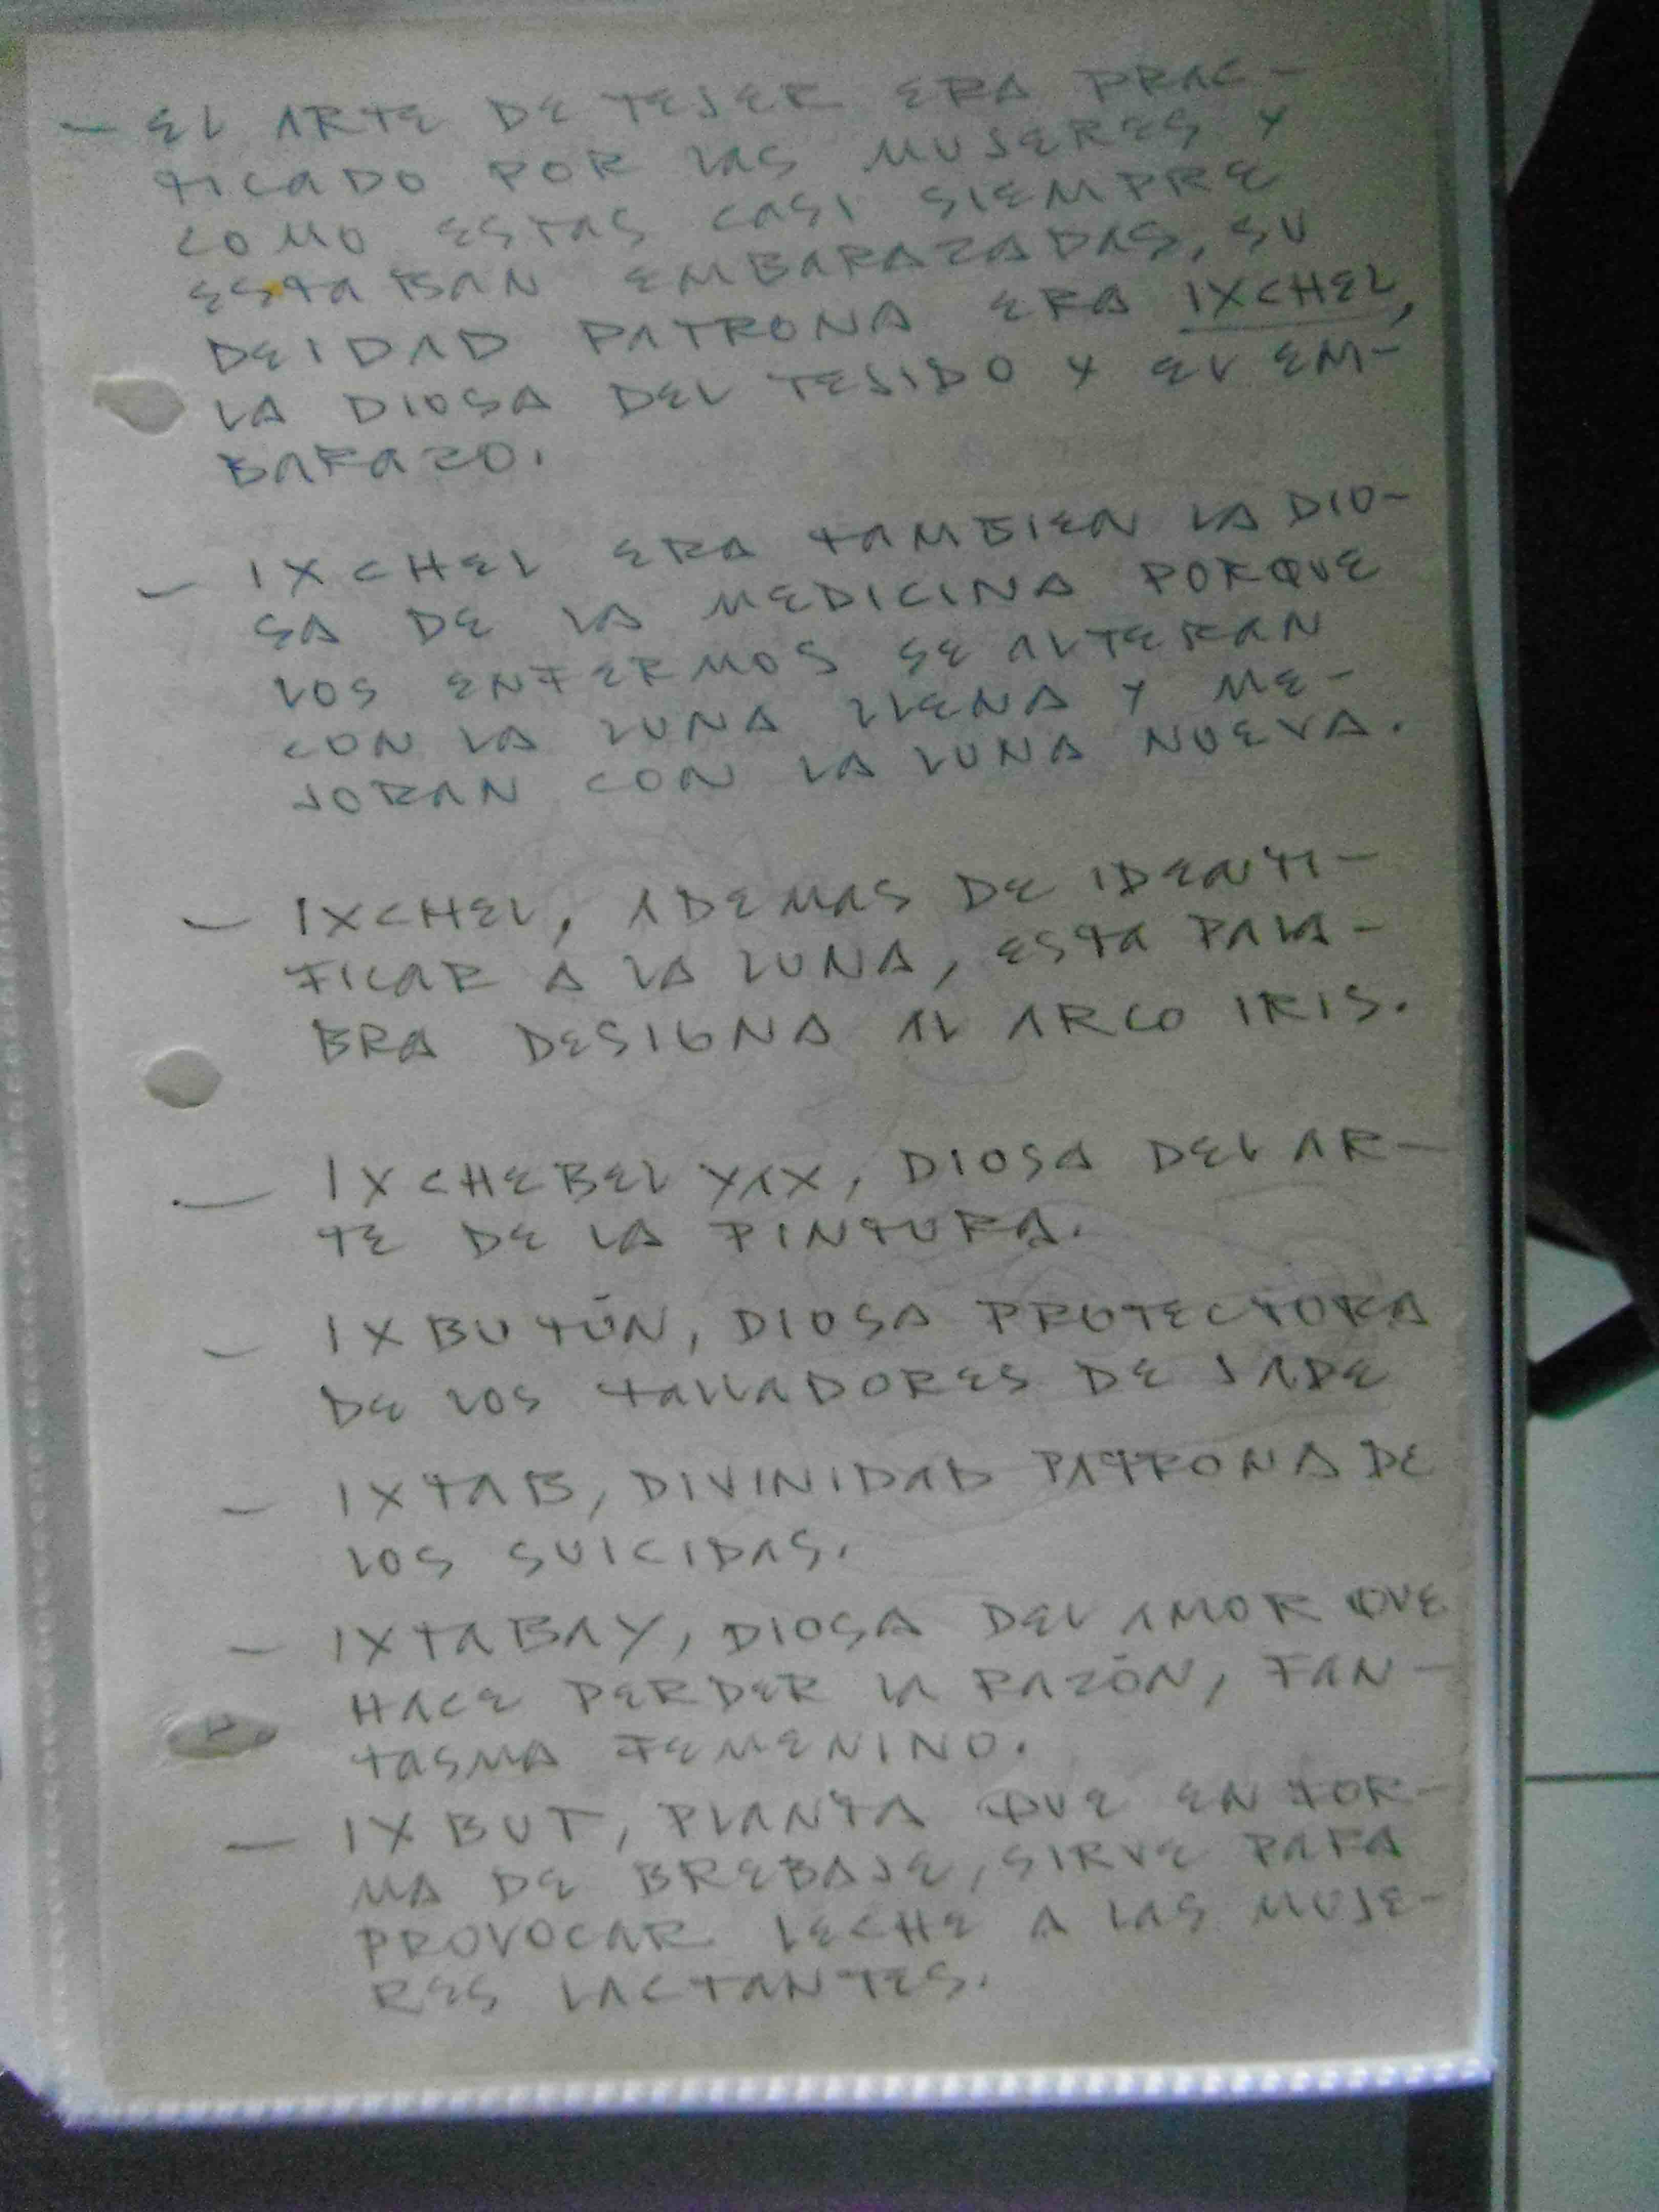 - EL ARTE DE TEJER ERA PRAC-
TICADO POR LAS MUJERES Y
COMO ESTAS CASI SIEMPRE
ESTABAN EMBARAZADAS, SU
DEIDAD PATRONA ERA IXCHEL,
LA DIOSA DEL TEJIDO Y EL EM-
BARAZO.
- IXCHEL ERA TAMBIEN LA DIO-
SA DE LA MEDICINA PORQUE
LOS ENFERMOS SE ALTERAN
CON LA LUNA LLENA Y ME-
JORAN CON LA LUNA NUEVA.
- IXCHEL, ADEMAS DE IDENTI-
FICAR A LA LUNA, ESTA PALA-
BRA DESIGNA AL ARCO IRIS.
- IXCHEBEL YAX, DIOSA DEL AR-
TE DE LA PINTURA.
- IXBUTÚN, DIOSA PROTECTORA
DE LOS TALLADORES DE JADE
- IXTAB, DIVINIDAD PATRONA DE
LOS SUICIDAS.
- IXTABAY, DIOSA DEL AMOR QUE
HACE PERDER LA RAZÓN, FAN-
TASMA FEMENINO.
- IXBUT, PLANTA QUE EN FOR-
MA DE BREBAJE, SIRVE PARA
PROVOCAR LECHE A LAS MUJE-
RES LACTANTES.